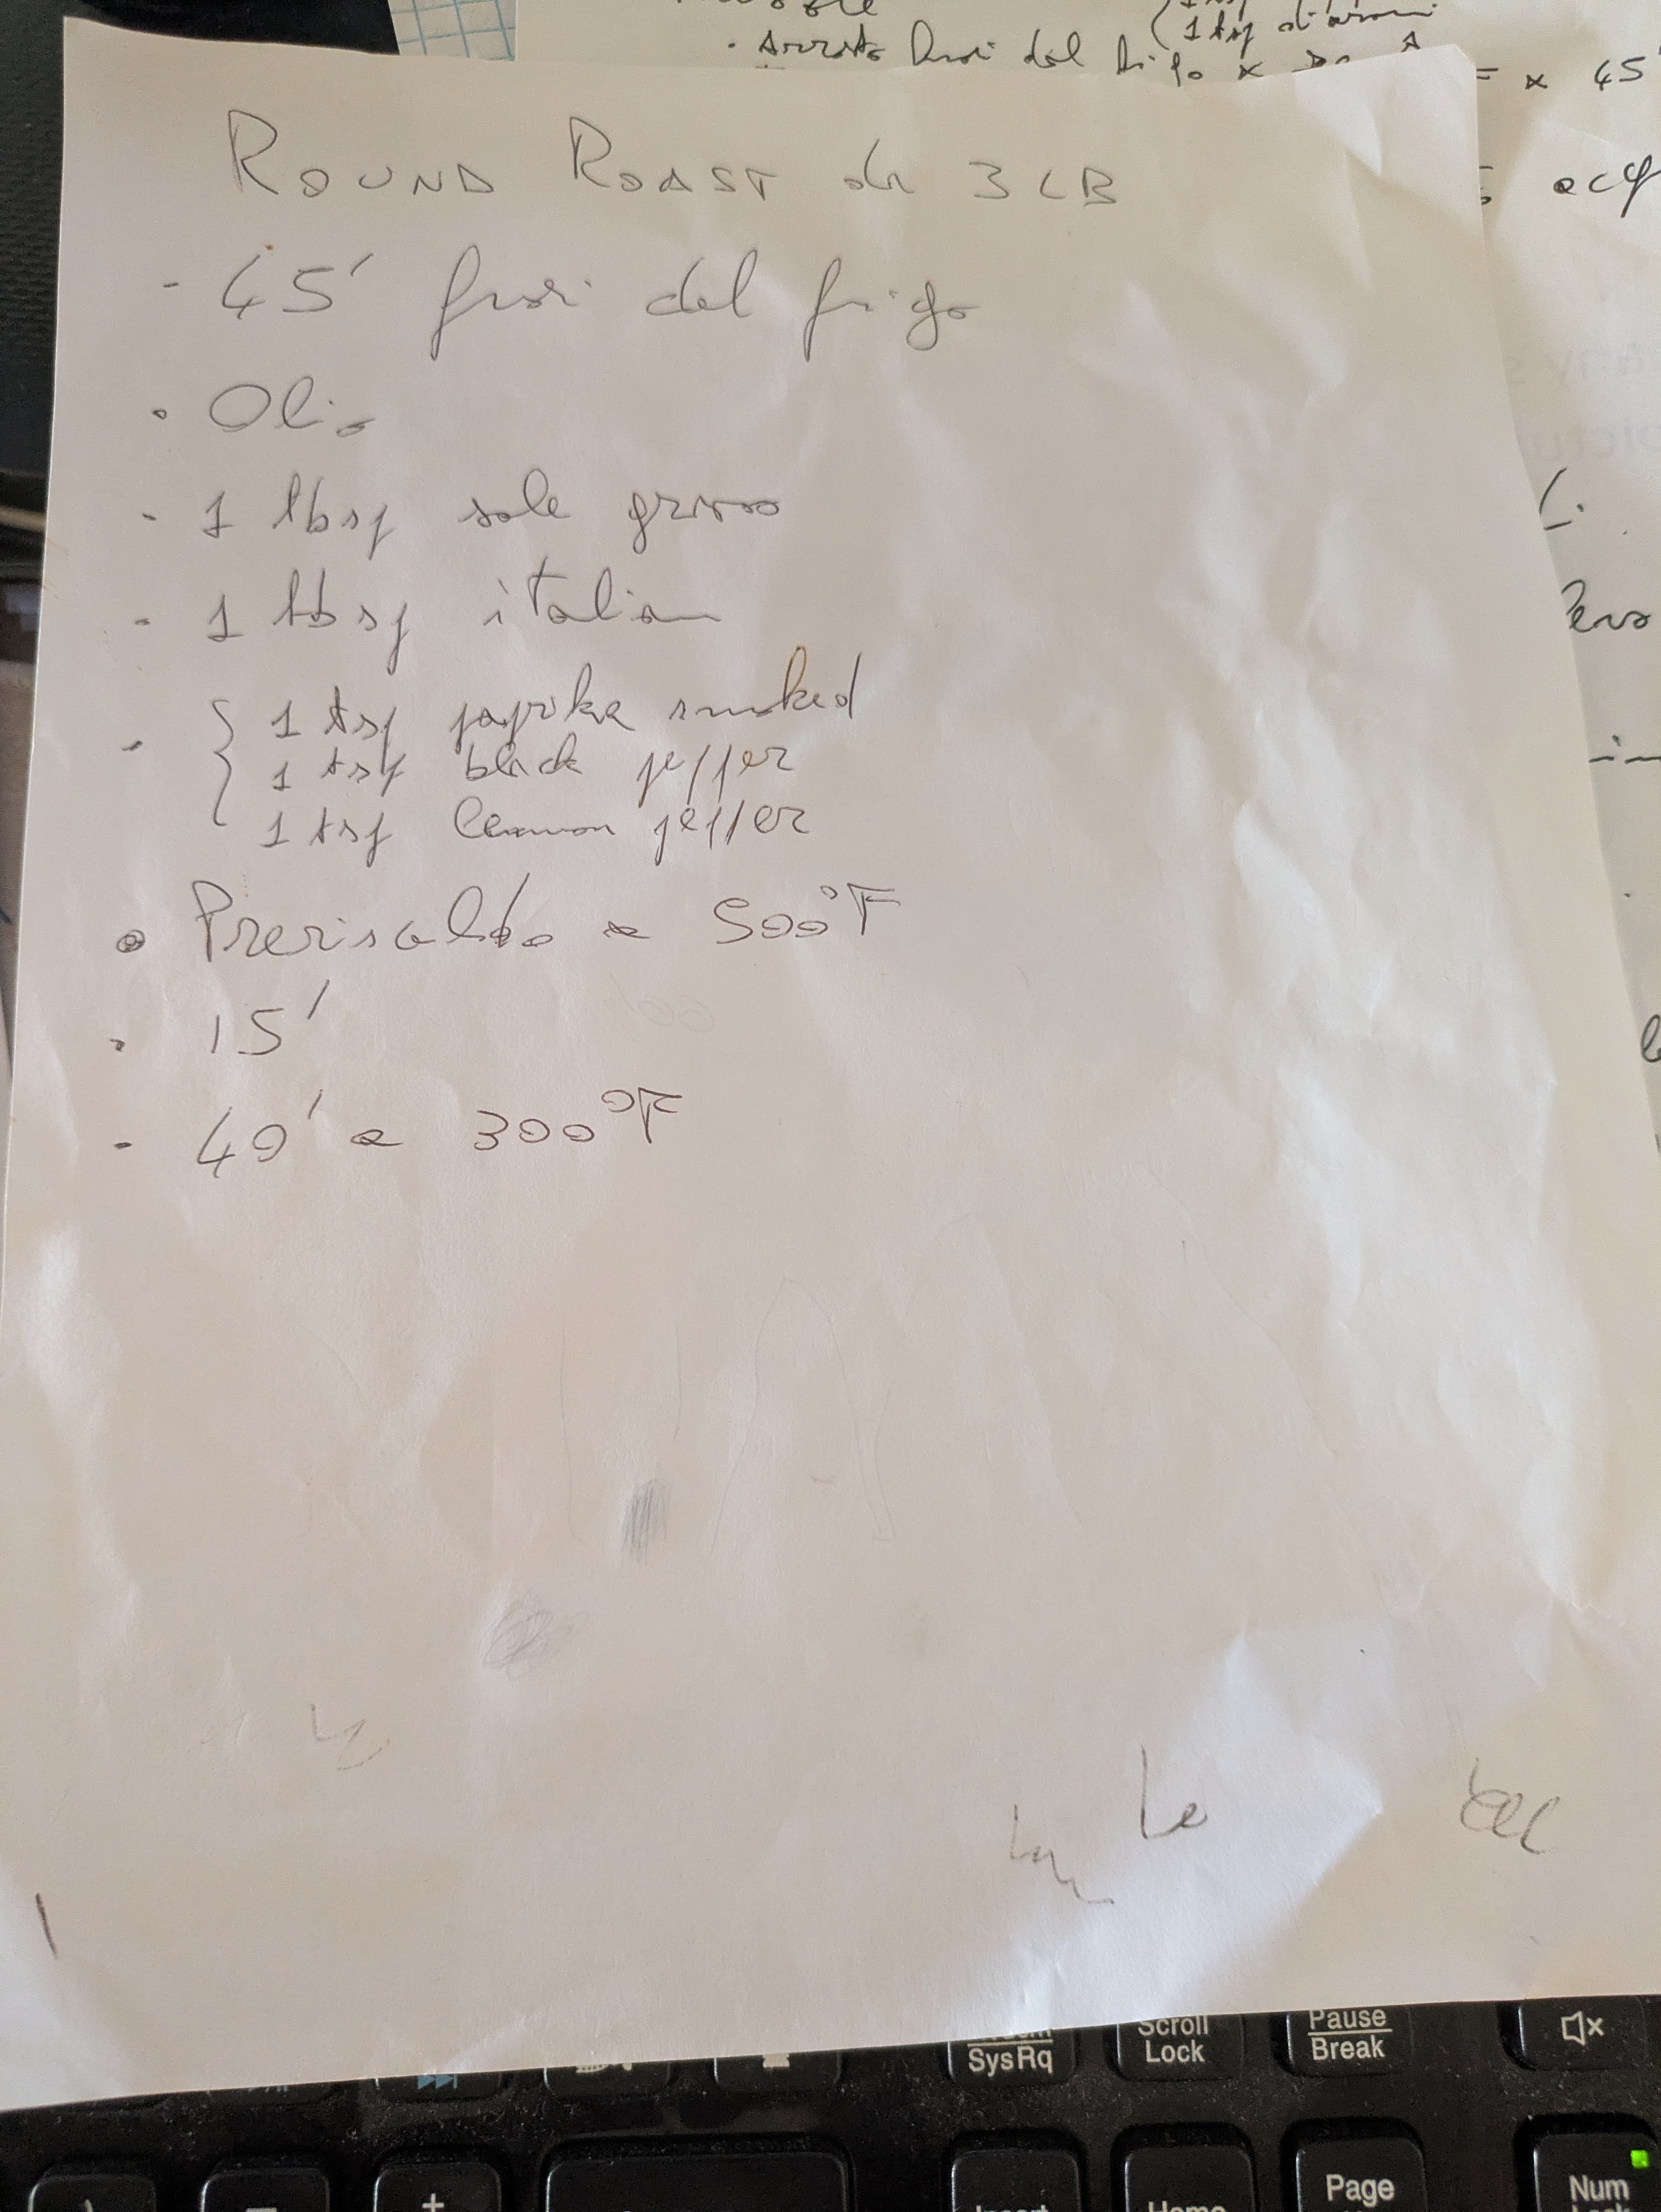 1 tsp
· Arrosto fuori dal frigo x
x 45'
ROUND ROAST da 3 LB
- 45' fuori dal frigo
· Olio
- 1 tbsp sale grosso
- 1 tbsp italian
- { 1 tsp paprika smoked
1 tsp black pepper
1 tsp lemon pepper
• Preriscaldo a 500°F
· 15'
- 40' a 300°F
Le
SysRq
Scroll
Lock
Pause
Break
Insert
Home
Page
Num
Lock